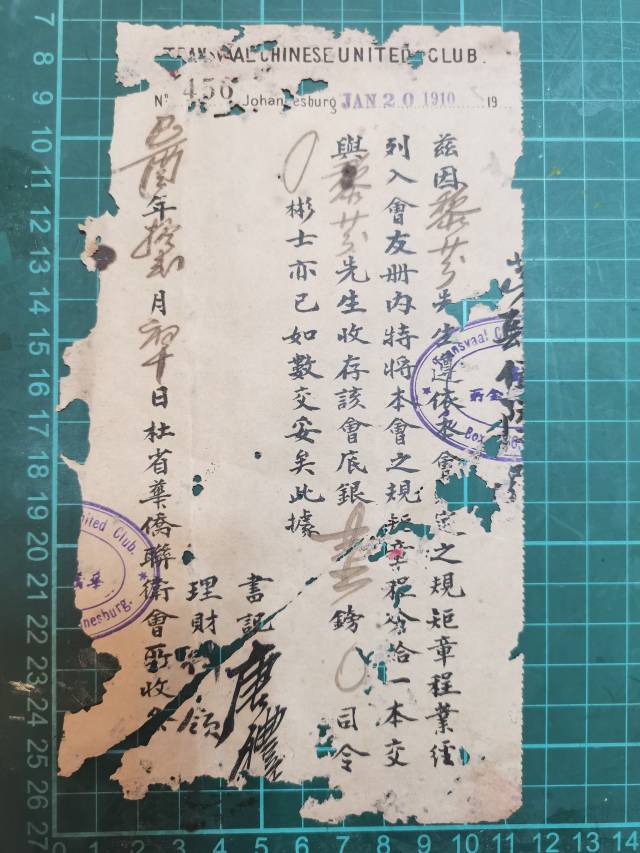 TRANSVAAL CHINESE UNITED CLUB.
No 456 Johannesburg JAN 20 1910 19
茲因黎芬先生遵依本會定之規矩章程業經
列入會友冊内特將本會之規矩章程發給一本交
與黎芬先生收存該會底銀壹鎊〇司令
〇彬士亦已如數交妥矣此據
書記唐禮
理財領
己酉年拾弍月初十日杜省華僑聯衛會所收
Transvaal
Box
United Club.
nesburg.